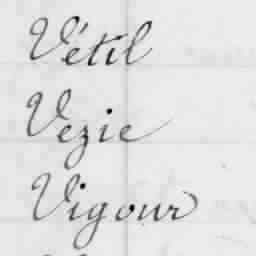 Vétil
Vezie
Vigour